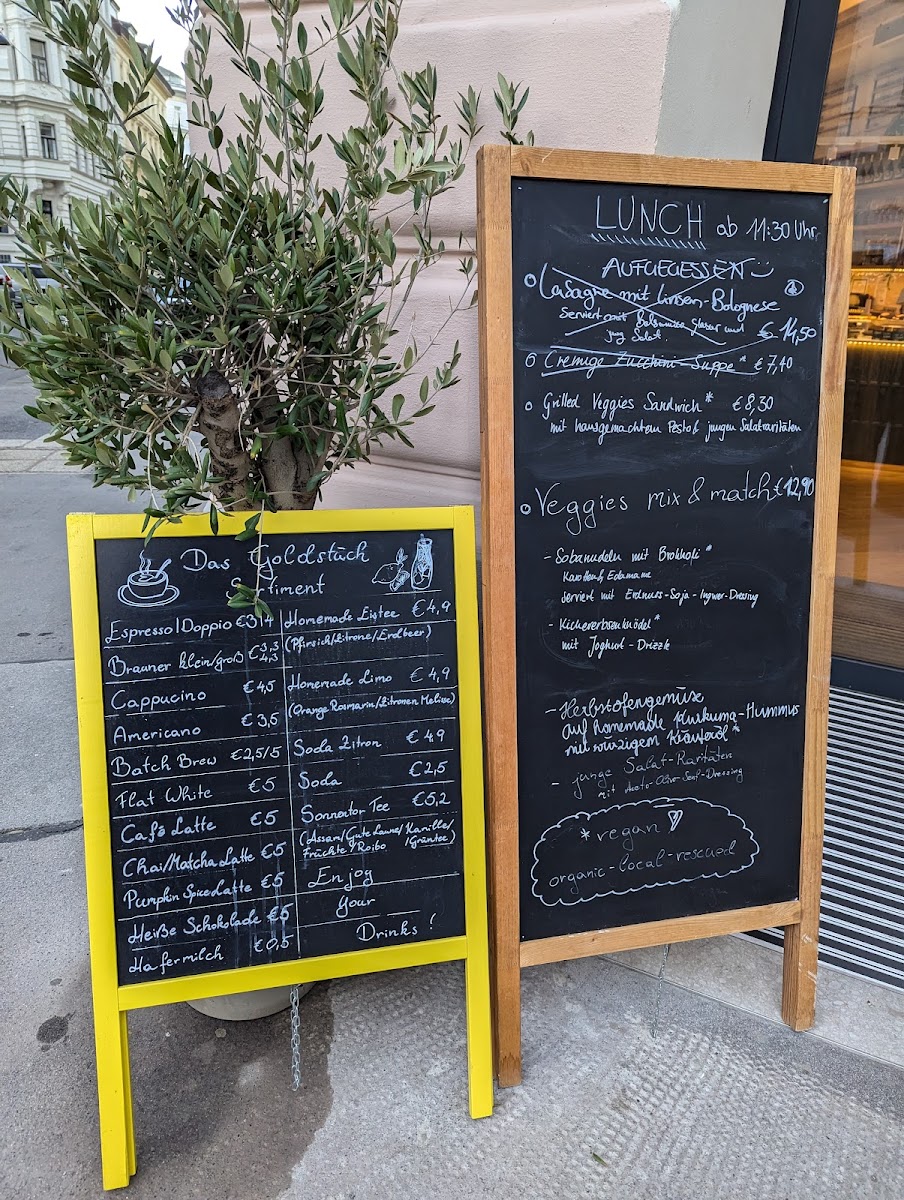 Das Goldstück
Espresso|Doppio €3|4
Brauner klein/groß €3,3
4,3
Cappucino €4,5
Americano €3,5
Batch Brew €2,5/5
Flat White €5
Café Latte €5
Chai/Matcha Latte €5
Pumpkin Spice Latte €5
Heiße Schokolade €5
Hafermilch €0,5
Homemade Eistee €4,9
(Pfirsich/Zitrone/Erdbeer)
Homemade Limo €4,9
(Orange Rosmarin/Zitronen Melisse)
Soda Zitron €4,9
Soda €2,5
Sonnentor Tee €5,2
(Assam/Gute Laune/Kamille/
Früchte/Roibo /Grüntee)
Enjoy
Your
Drinks!
LUNCH ab 11:30 Uhr
AUFGEGESSEN
Lasagne mit Linsen-Bolognese
Serviert mit Balsamico Glasur und € 14,50
jug Salat.
Cremige Zucchini-Suppe* € 7,40
Grilled Veggies Sandwich* €8,30
mit hausgemachtem Pesto & jungen Salatraritäten
Veggies mix & match €12,90
- Sobanudeln mit Brokkoli*
Karotten & Edamame
serviert mit Erdnuss-Soja-Ingwer-Dressing
- Kichererbsenknödel*
mit Joghurt-Drizzle
- Herbstofengemüse
auf homemade Kurkuma-Hummus
mit würzigem Kräuteröl*
- junge Salat-Raritäten
mit Senf-Dressing
*vegan
organic-local-rescued